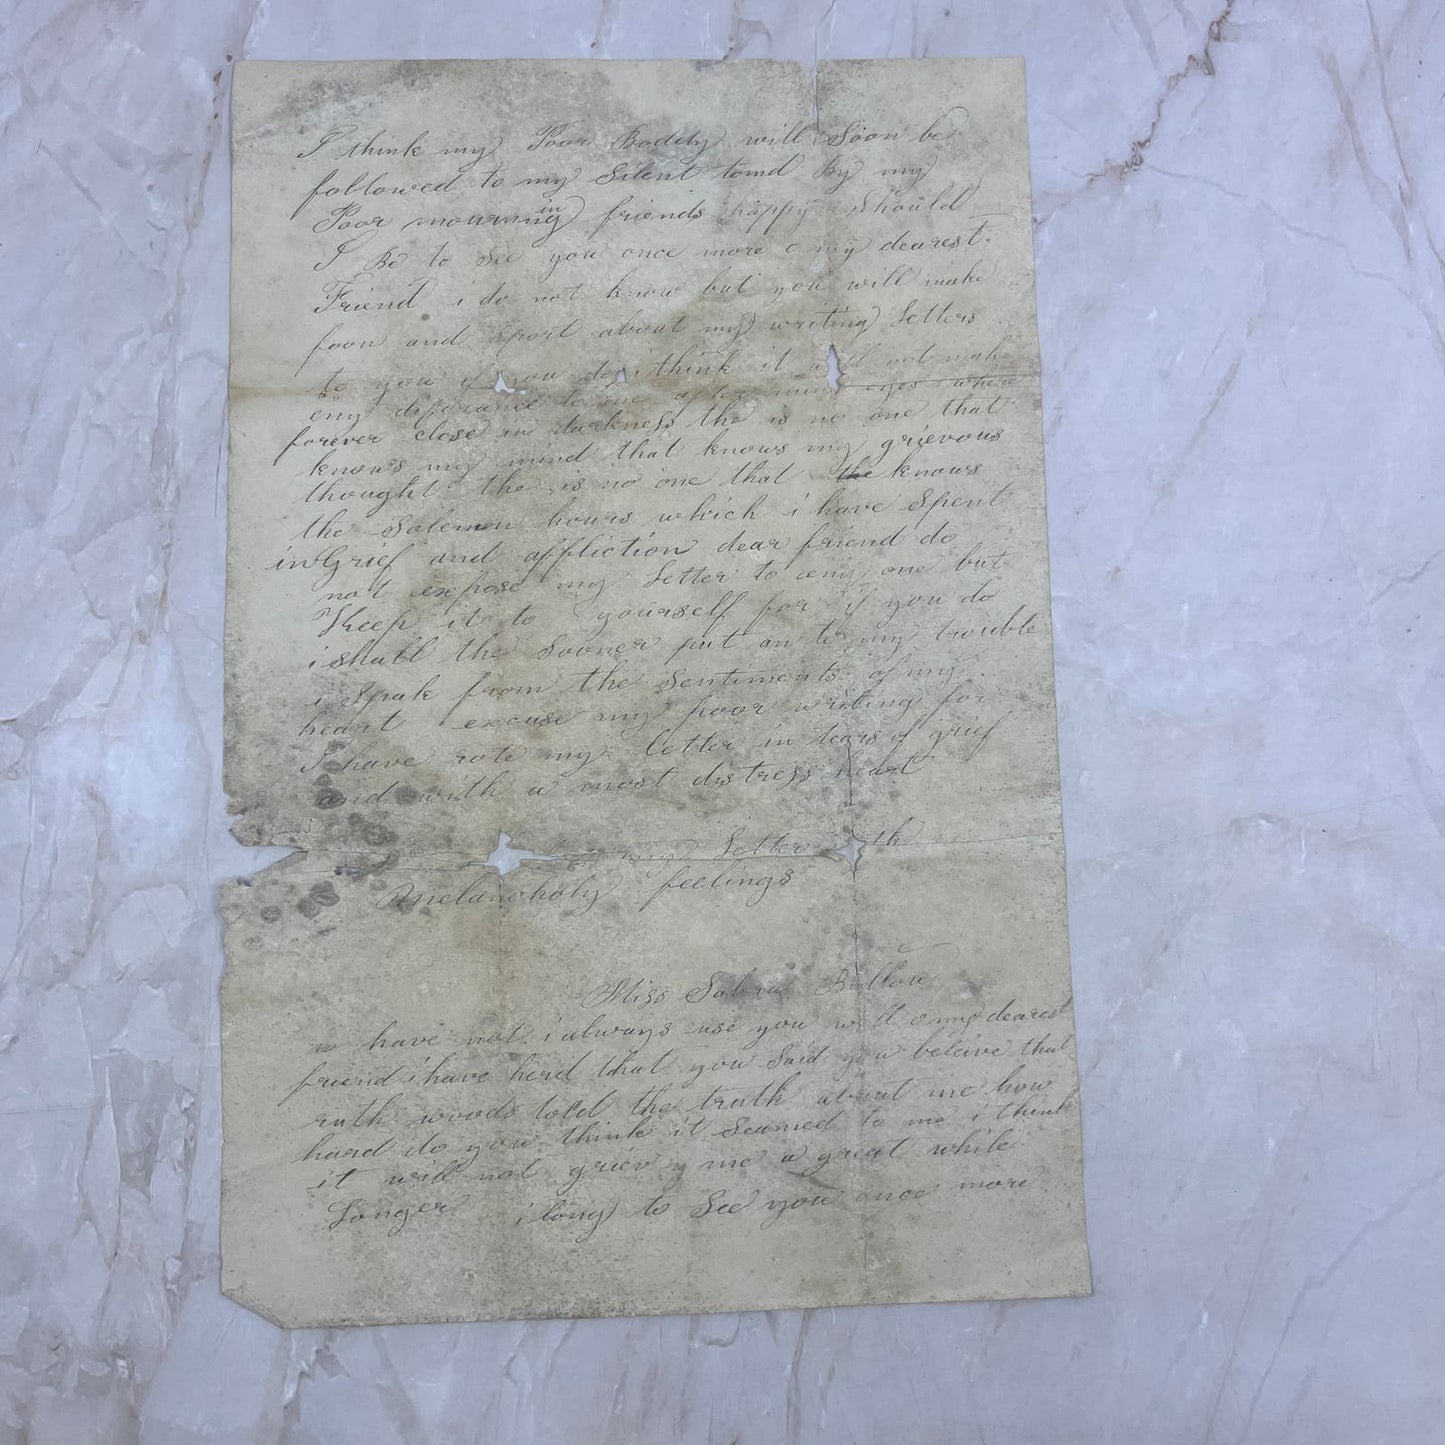 I think my Poor Boddy will Soon be
followed to my Silent tomd By my
Poor mourning friends happy Should
I Be to See you once more o my dearest
Friend i do not know but you will make
foon and Sport about my writing Letters
to you if you do i think it will not make
eny diferance to me after mine eyes where
forever close in darkness the is no one that
knows my mind that knows my grievous
thought the is no one that the knows
the Solemn hours which i have Spent
in Grief and affliction dear friend do
not expose my Letter to eny one but
Keep it to yourself for if you do
i shall the Sooner put an to my trouble
i Speak from the Sentiments of my
heart excuse my poor writing for
I have rote my letter in tears of grief
and with a most distress heart
my Letter th
Melancholy feelings
Miss Sabra
have not i always use you well o my dearest
friend i have herd that you Said you beleive that
ruth woods told the truth about me how
hard do you think it Seamed to me i think
it will not griev me a great while
Longer i long to See you once more